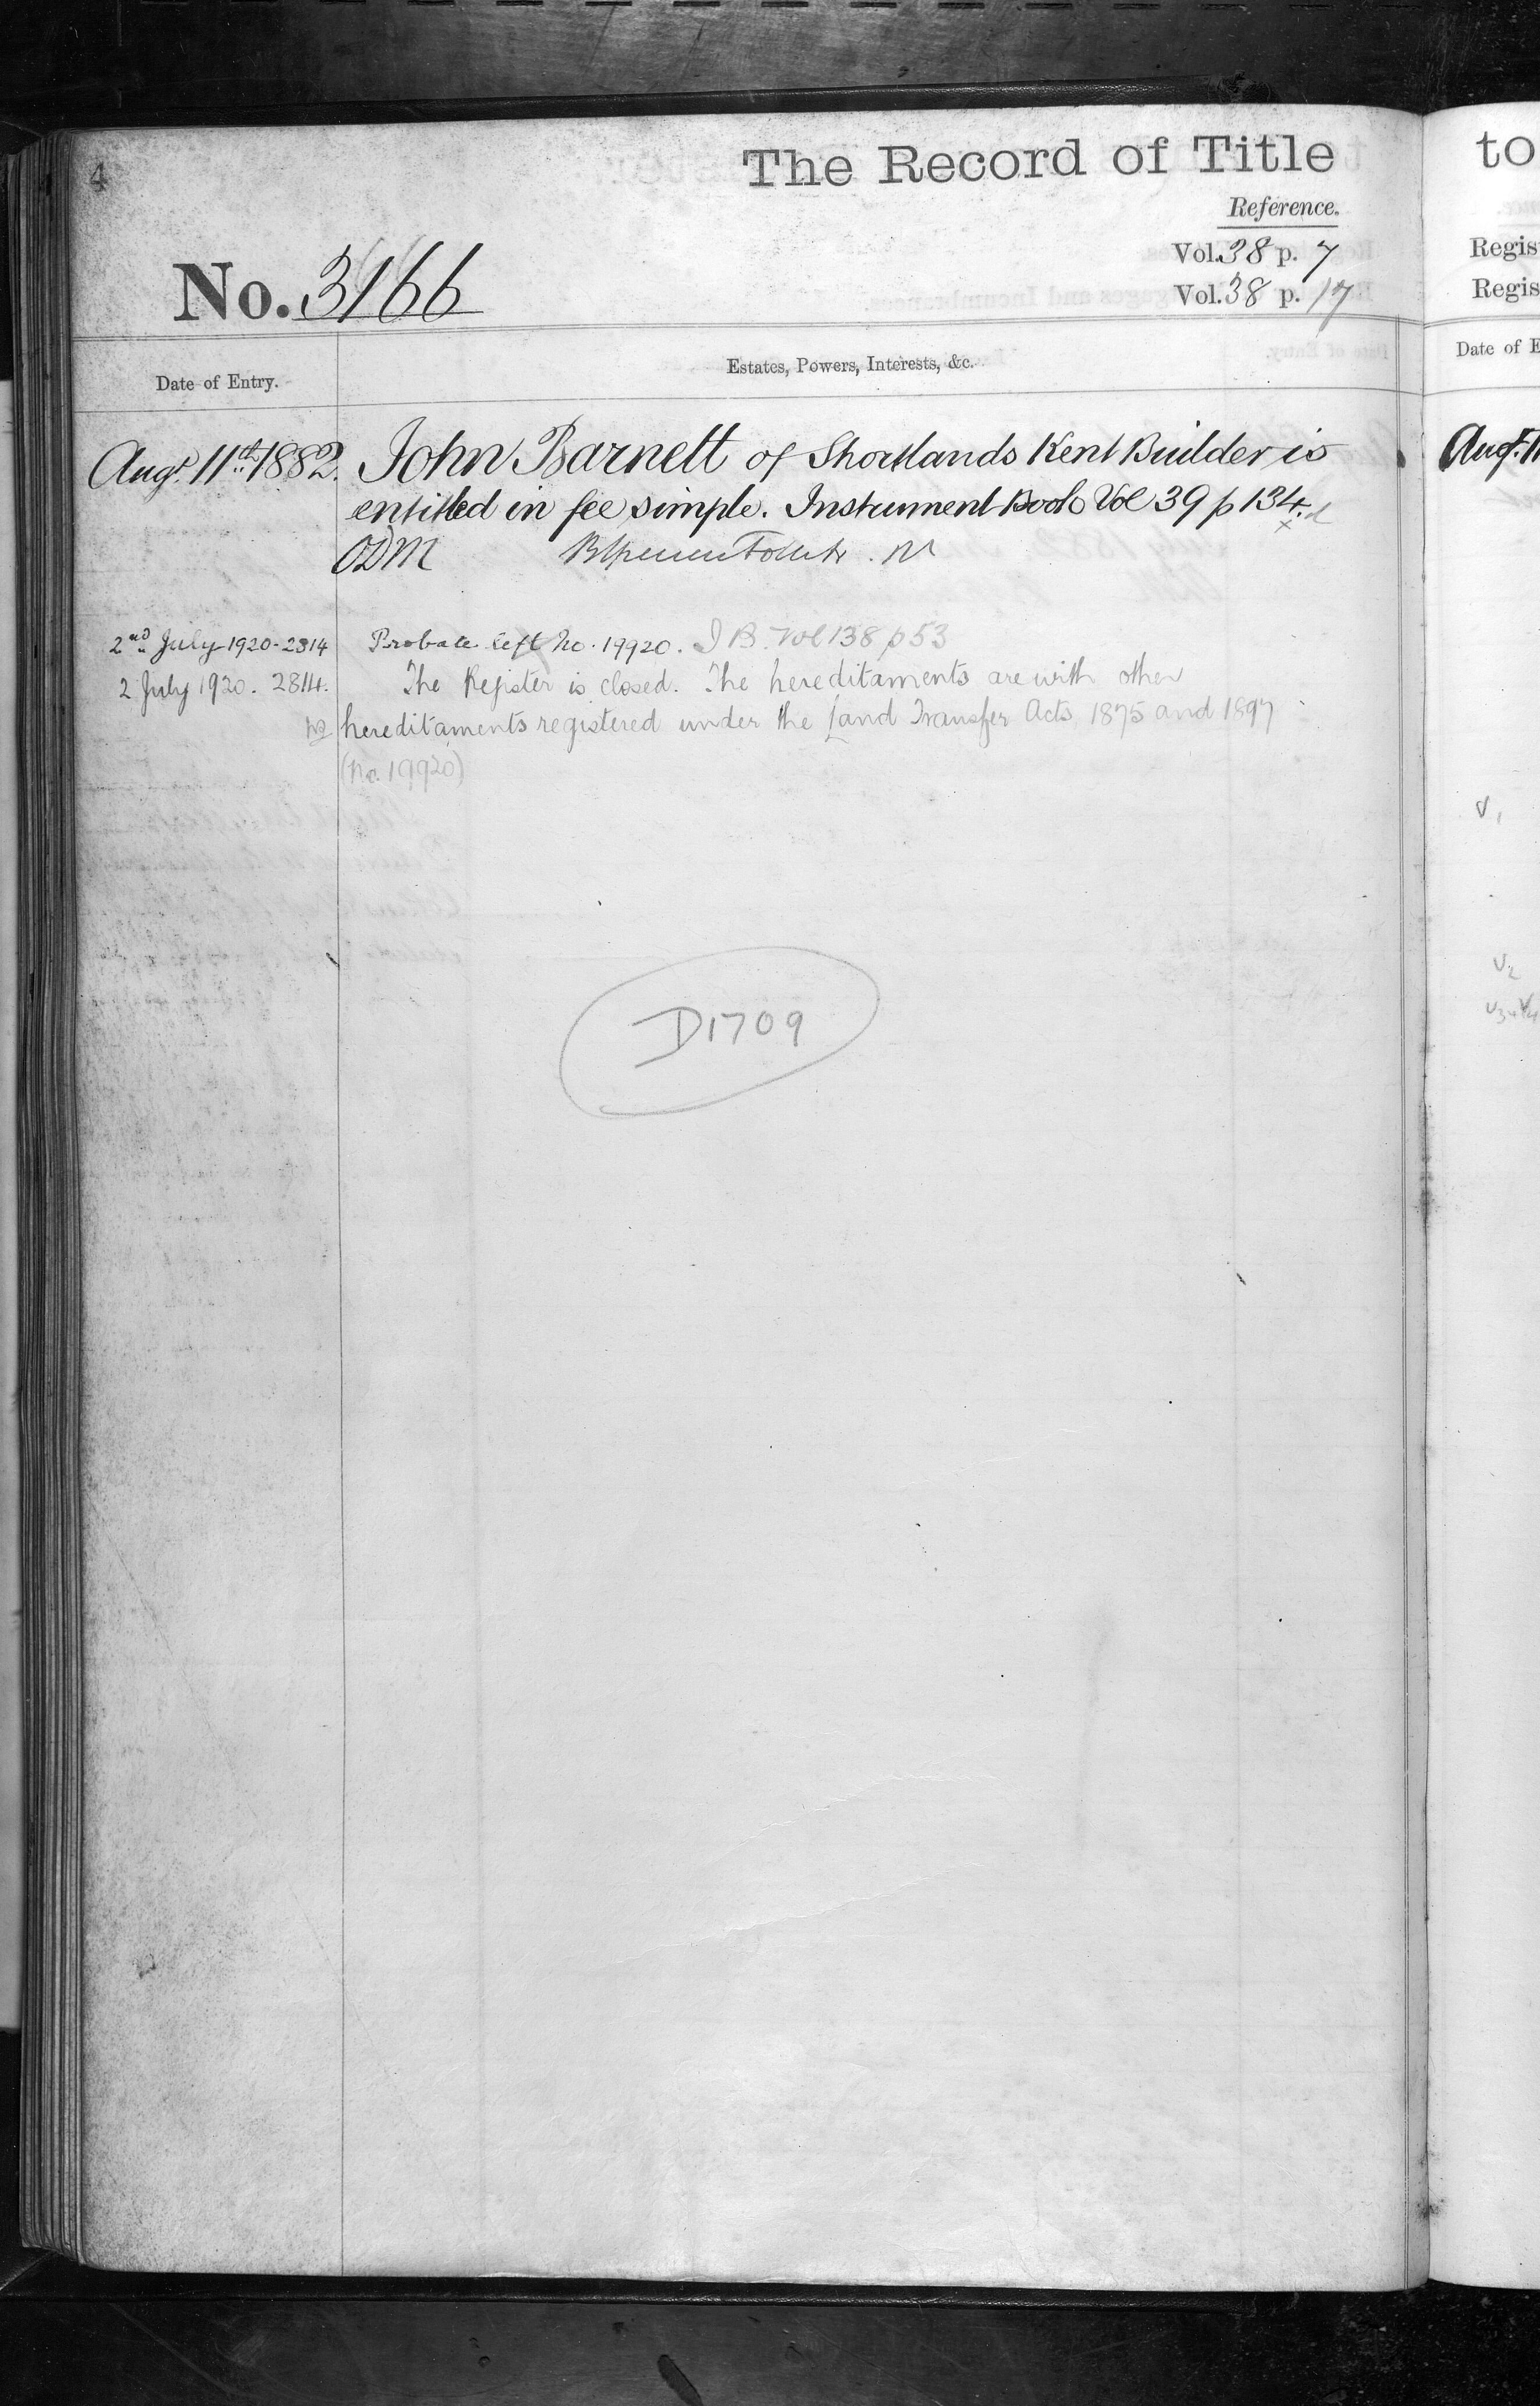 4
The Record of Title
Reference.
No. 3166
Vol. 38 p. 7
Vol. 38 p. 17
Date of Entry.
Estates, Powers, Interests, &c.
Augt. 11th 1882. John Barnett of Shortlands Kent Builder is
entitled in fee simple. Instrument Book Vol 39 p 134.
ODM
2nd July 1920 - 2814 Probate left No. 19920. I B. Vol 138 p 53
2 July 1920. 2814. The Register is closed. The hereditaments are with other
hereditaments registered under the Land Transfer Acts 1875 and 1897
(No. 19920)
D1709
to
Regis
Regis
Date of E
Augt. 11
V1
V2
V3 + V4